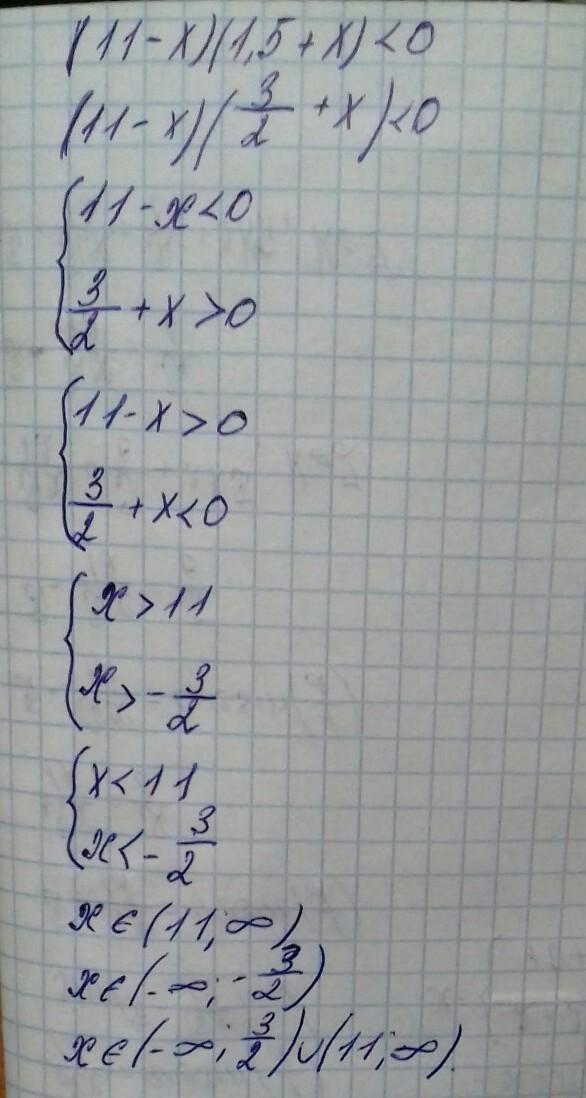 (11-x)(1,5+x)<0
(11-x)(3/2+x)<0
{11-x<0
3/2+x>0
{11-x>0
3/2+x<0
{x>11
x>-3/2
{x<11
x<-3/2
x∈(11;∞)
x∈(-∞;-3/2)
x∈(-∞;3/2)∪(11;∞).